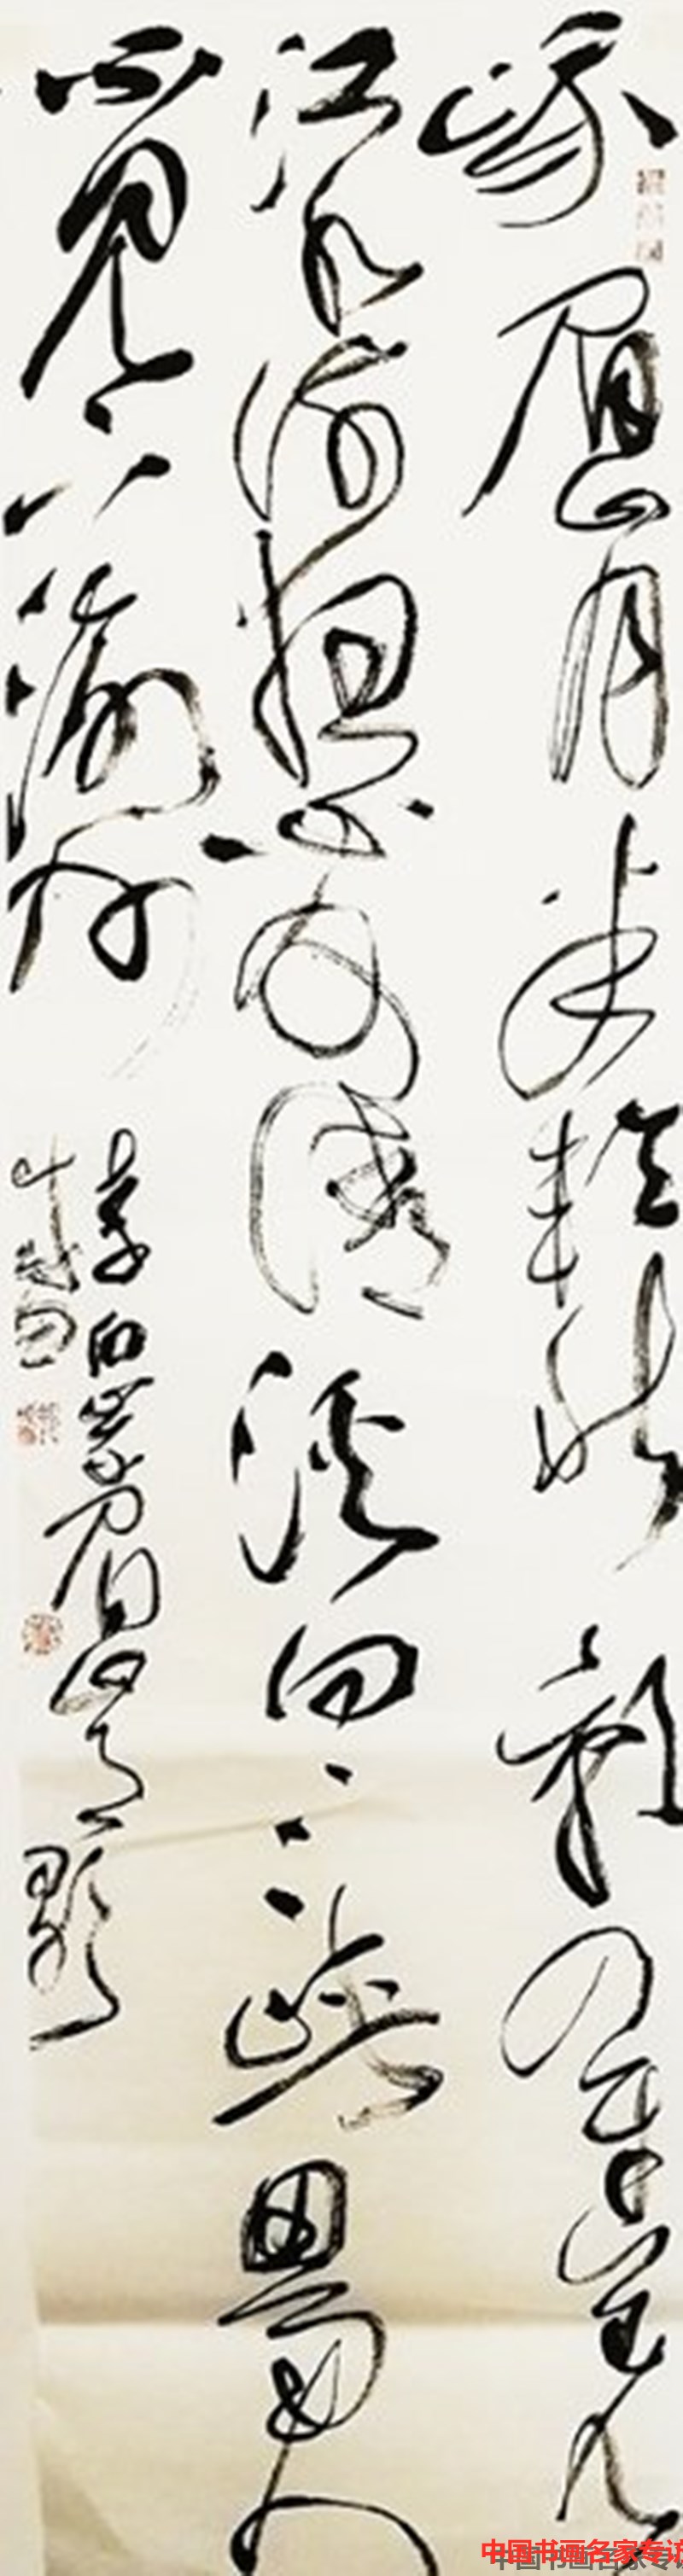 峨眉山月半輪秋影入平羌
江水流夜發清溪向三峽思君
不見下渝州
李白峨眉山月歌
中国书画名家专访